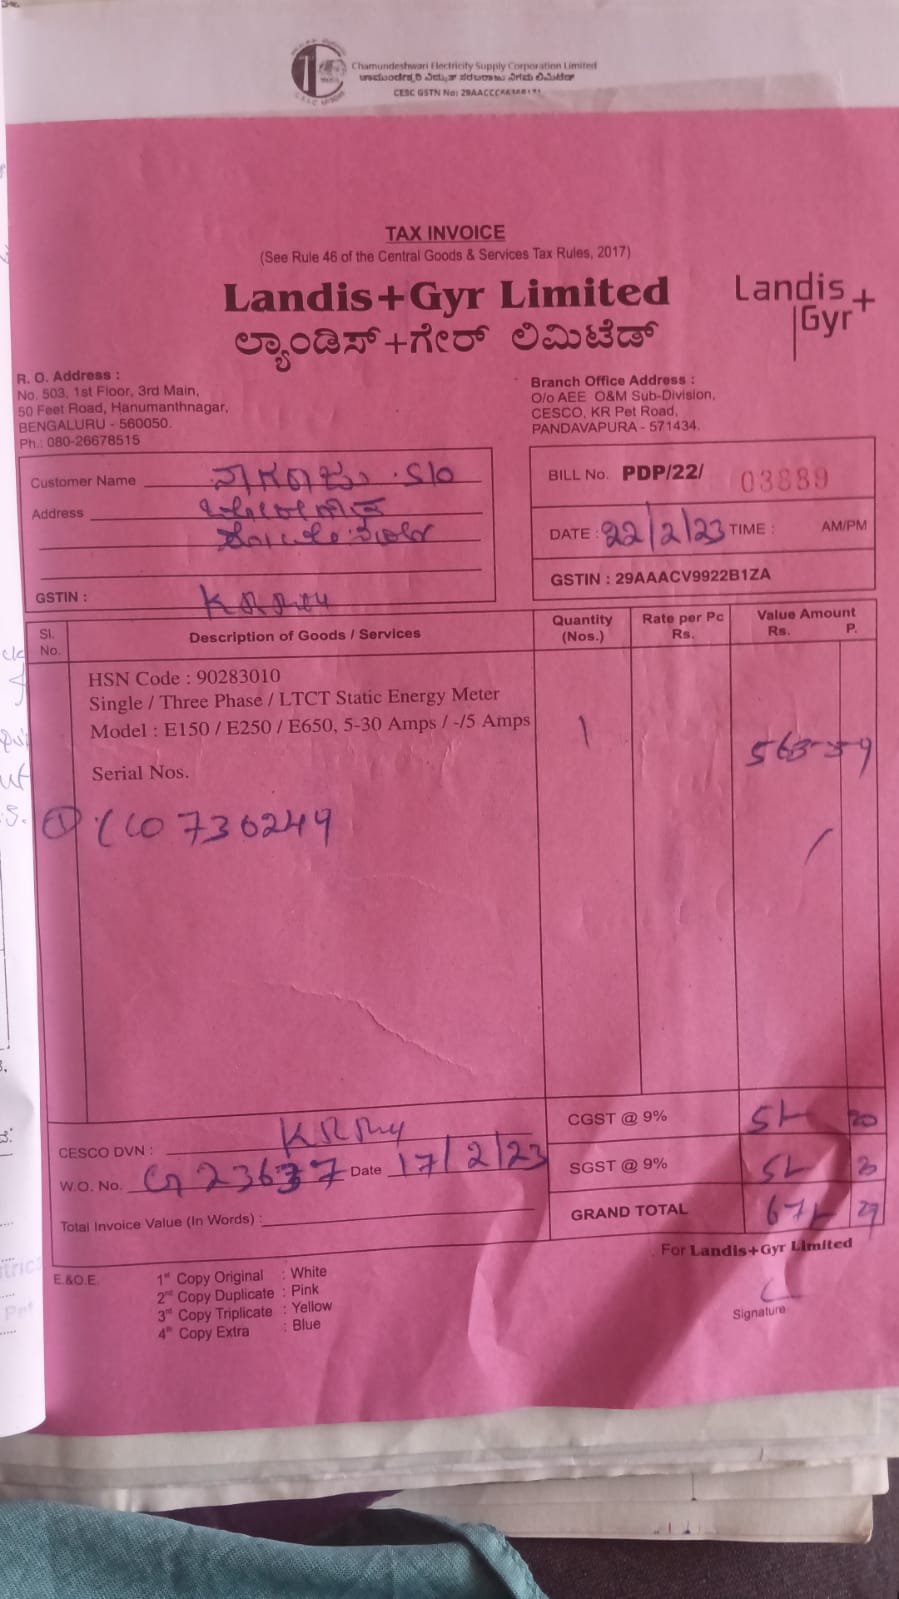 Chamundeshwari Electricity Supply Corporation Limited
ಚಾಮುಂಡೇಶ್ವರಿ ವಿದ್ಯುತ್ ಸರಬರಾಜು ನಿಗಮ ಲಿಮಿಟೆಡ್
CESC GSTN No:
TAX INVOICE
(See Rule 46 of the Central Goods & Services Tax Rules, 2017)
Landis+Gyr Limited
Landis
Gyr+
ಲ್ಯಾಂಡಿಸ್+ಗೇರ್ ಲಿಮಿಟೆಡ್
R. O. Address :
No. 503, 1st Floor, 3rd Main,
50 Feet Road, Hanumanthnagar,
BENGALURU - 560050.
Ph.: 080-26678515
Branch Office Address :
O/o AEE O&M Sub-Division,
CESCO, KR Pet Road,
PANDAVAPURA - 571434.
Customer Name ನಾಗರಾಜು S/O
Address
GSTIN :
BILL No. PDP/22/ 03889
DATE : 22/2/23 TIME : AM/PM
GSTIN : 29AAACV9922B1ZA
Sl. No. Description of Goods / Services Quantity (Nos.) Rate per Pc Rs. Value Amount Rs. P.
HSN Code : 90283010
Single / Three Phase / LTCT Static Energy Meter
Model : E150 / E250 / E650, 5-30 Amps / -/5 Amps 1
Serial Nos.
① 730249
CESCO DVN :
W.O. No. Date 17/2/23
Total Invoice Value (In Words) :
CGST @ 9%
SGST @ 9%
GRAND TOTAL
For Landis+Gyr Limited
Signature
E.&O.E.
1st Copy Original : White
2nd Copy Duplicate : Pink
3rd Copy Triplicate : Yellow
4th Copy Extra : Blue